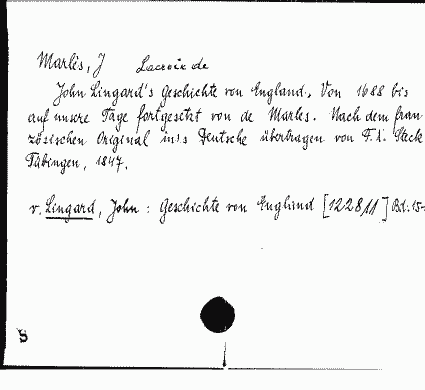 Marlès, J Lacroix de
John Lingard's Geschichte von England, Von 1688 bis
auf unsere Tage fortgesetzt von de Marles. Nach dem fran
zösischen Original in's Deutsche übertragen von F. X. Steck
Tübingen, 1847.
v. Lingard, John : Geschichte von England [122811] Bd. 15-
S